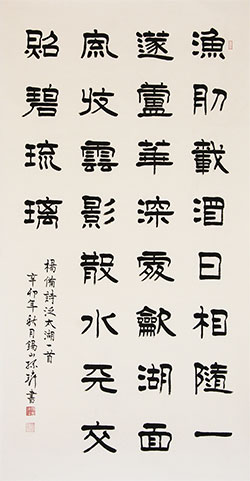 漁舠載酒日相隨一
遂蘆華深處歙湖面
風收雲影散水天交
照碧琉璃
楊備詩泛太湖一首
辛卯年秋月錫山孫沂書